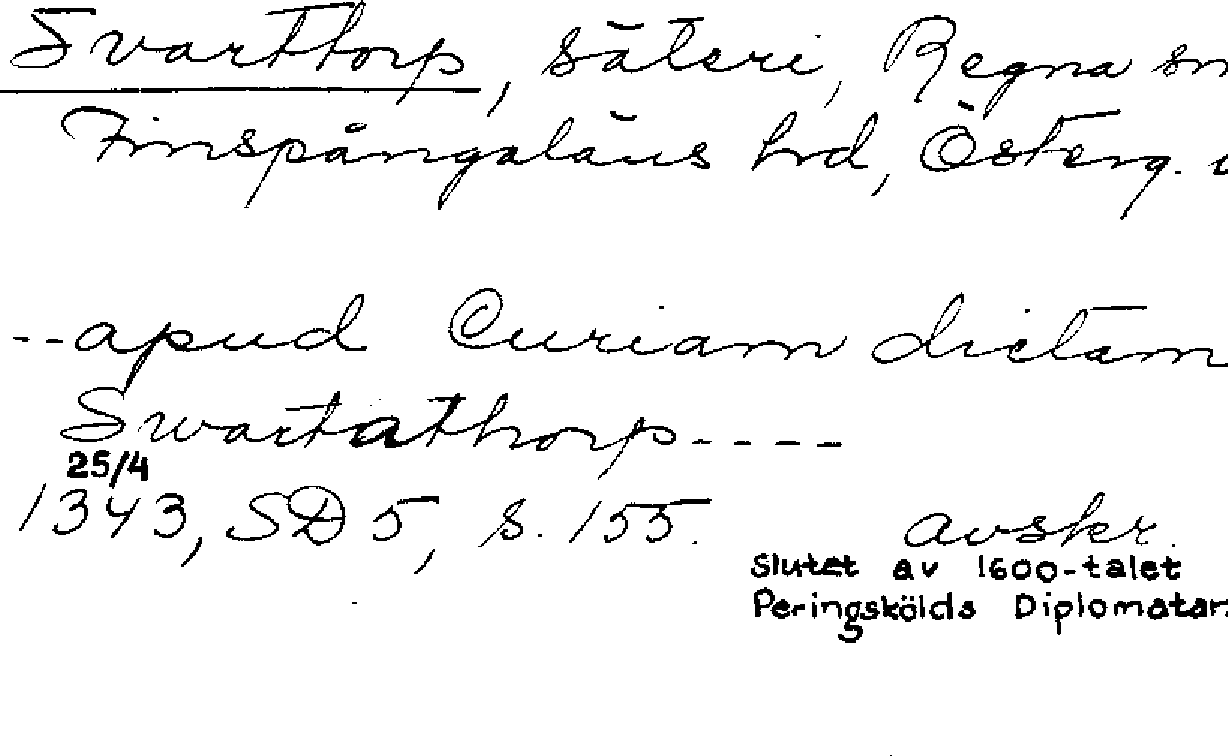 Svarttorp, säteri, Regna sn
Finspångaläns hrd, Österg.
--apud Curiam dictam
Swartathorp----
25/4
1343, SD 5, s. 155. avskr.
Slutet av 1600-talet
Peringskölds Diplomatar